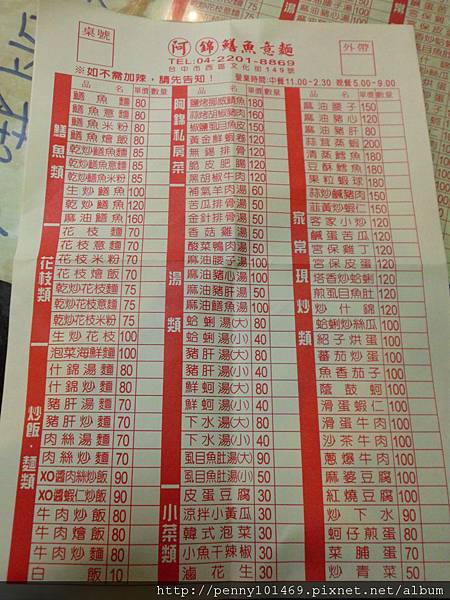 桌號
阿錦鱔魚意麵
外帶
TEL:04-2201-8869
台中市西區文化街149號
※如不需加辣,請先告知!
營業時間:中餐11.00-2.30 晚餐5.00-9.00
品名 單價 數量
鱔魚類
鱔魚麵 80
鱔魚意麵 80
鱔魚米粉 80
鱔魚燴飯 80
乾炒鱔魚麵 85
乾炒鱔魚意麵 85
乾炒鱔魚米粉 85
生炒鱔魚 100
乾炒鱔魚 120
麻油鱔魚 160
花枝類
花枝麵 70
花枝意麵 70
花枝米粉 70
花枝燴飯 70
乾炒花枝麵 75
乾炒花枝意麵 75
乾炒花枝米粉 75
生炒花枝 100
炒飯・麵類
泡菜海鮮麵 100
什錦湯麵 80
什錦炒麵 80
豬肝湯麵 70
豬肝炒麵 70
肉絲湯麵 70
肉絲炒麵 70
XO醬肉絲炒飯 90
XO醬蝦仁炒飯 90
牛肉炒飯 80
牛肉燴飯 80
牛肉炒麵 80
白飯 10
品名 單價 數量
阿錦私房菜
鹽烤挪威鯖魚 180
蒜烤沏椒豬肉 160
椒鹽虱目魚皮 150
黃金鮮蝦卷 120
無錫排骨 120
脆皮肥腸 120
黑胡椒牛肉 120
湯類
補氣羊肉湯 60
苦瓜排骨湯 50
金針排骨湯 50
香菇雞湯 50
酸菜鴨肉湯 50
麻油腰子湯 100
麻油豬心湯 100
麻油豬肝湯 50
麻油鱔魚湯 100
蛤蜊湯(大) 80
蛤蜊湯(小) 40
豬肝湯(大) 80
豬肝湯(小) 40
鮮蚵湯(大) 80
鮮蚵湯(小) 40
下水湯(大) 80
下水湯(小) 40
虱目魚肚湯(大) 90
虱目魚肚湯(小) 50
小菜類
皮蛋豆腐 30
涼拌小黃瓜 30
韓式泡菜 30
小魚干辣椒 30
滷花生 30
品名 單價 數量
家常現炒類
麻油腰子 150
麻油豬心 150
麻油豬肝 80
蒜茸蒸蝦 200
清蒸鱈魚 180
豆酥鱈魚 180
果粒蝦球 180
蒜炒鹹豬肉 150
韮黃炒蝦仁 150
客家小炒 120
鹹蛋苦瓜 120
宮保雞丁 120
宮保皮蛋 120
塔香炒蛤蜊 120
煎虱目魚肚 120
炒什錦 120
蛤蜊炒絲瓜 100
紹子烘蛋 100
蕃茄炒蛋 100
魚香茄子 100
蔭豉蚵 100
滑蛋蝦仁 100
滑蛋牛肉 100
沙茶牛肉 100
蔥爆牛肉 100
麻婆豆腐 100
紅燒豆腐 100
炒下水 90
蚵仔煎蛋 80
菜脯蛋 70
炒青菜 50
http://penny101469.pixnet.net/album